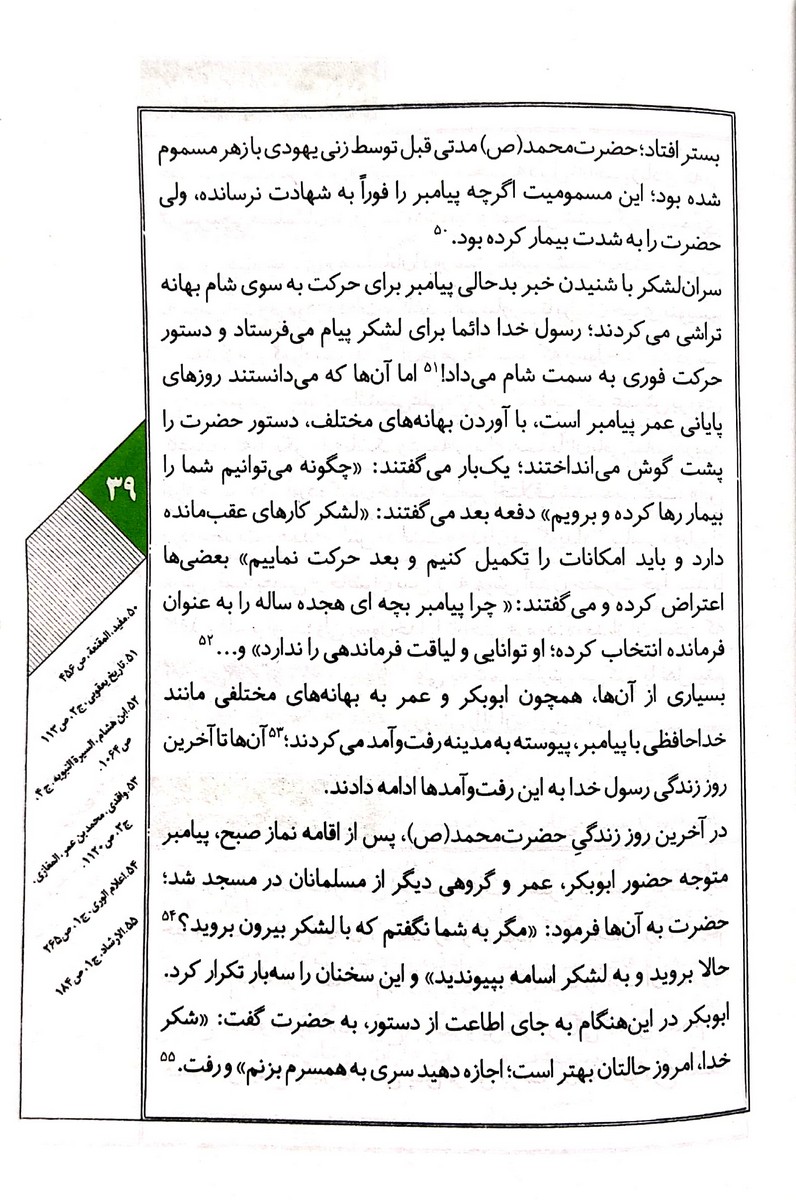 بستر افتاد؛ حضرت‌محمد(ص) مدتی قبل توسط زنی یهودی با زهر مسموم
شده بود؛ این مسمومیت اگرچه پیامبر را فوراً به شهادت نرسانده، ولی
حضرت را به شدت بیمار کرده بود.۵۰
سران‌لشکر با شنیدن خبر بدحالی پیامبر برای حرکت به سوی شام بهانه
تراشی می‌کردند؛ رسول خدا دائما برای لشکر پیام می‌فرستاد و دستور
حرکت فوری به سمت شام می‌داد!۵۱ اما آن‌ها که می‌دانستند روزهای
پایانی عمر پیامبر است، با آوردن بهانه‌های مختلف، دستور حضرت را
پشت گوش می‌انداختند؛ یک‌بار می‌گفتند: «چگونه می‌توانیم شما را
بیمار رها کرده و برویم» دفعه بعد می‌گفتند: «لشکر کارهای عقب‌مانده
دارد و باید امکانات را تکمیل کنیم و بعد حرکت نماییم» بعضی‌ها
اعتراض کرده و می‌گفتند: « چرا پیامبر بچه ای هجده ساله را به عنوان
فرمانده انتخاب کرده؛ او توانایی و لیاقت فرماندهی را ندارد» و...۵۲
بسیاری از آن‌ها، همچون ابوبکر و عمر به بهانه‌های مختلفی مانند
خداحافظی با پیامبر، پیوسته به مدینه رفت‌وآمد می‌کردند؛۵۳ آن‌ها تا آخرین
روز زندگی رسول خدا به این رفت‌وآمدها ادامه دادند.
در آخرین روز زندگیِ حضرت‌محمد(ص)، پس از اقامه نماز صبح، پیامبر
متوجه حضور ابوبکر، عمر و گروهی دیگر از مسلمانان در مسجد شد؛
حضرت به آن‌ها فرمود: «مگر به شما نگفتم که با لشکر بیرون بروید؟۵۴
حالا بروید و به لشکر اسامه بپیوندید» و این سخنان را سه‌بار تکرار کرد.
ابوبکر در این‌هنگام به جای اطاعت از دستور، به حضرت گفت: «شکر
خدا، امروز حالتان بهتر است؛ اجازه دهید سری به همسرم بزنم» و رفت.۵۵
۳۹
۵۰. مفید. المقنعة. ص ۴۵۶
۵۱. تاریخ یعقوبی. ج۲. ص ۱۱۳
۵۲. ابن هشام. السیرة النبویه. ج ۴.
ص ۱۰۶۴.
۵۳. واقدی. محمد بن عمر. المغازی.
ج۳. ص ۱۱۲۰.
۵۴. اعلام الوری. ج ۱. ص ۲۶۵
۵۵. الارشاد. ج ۱. ص ۱۸۴